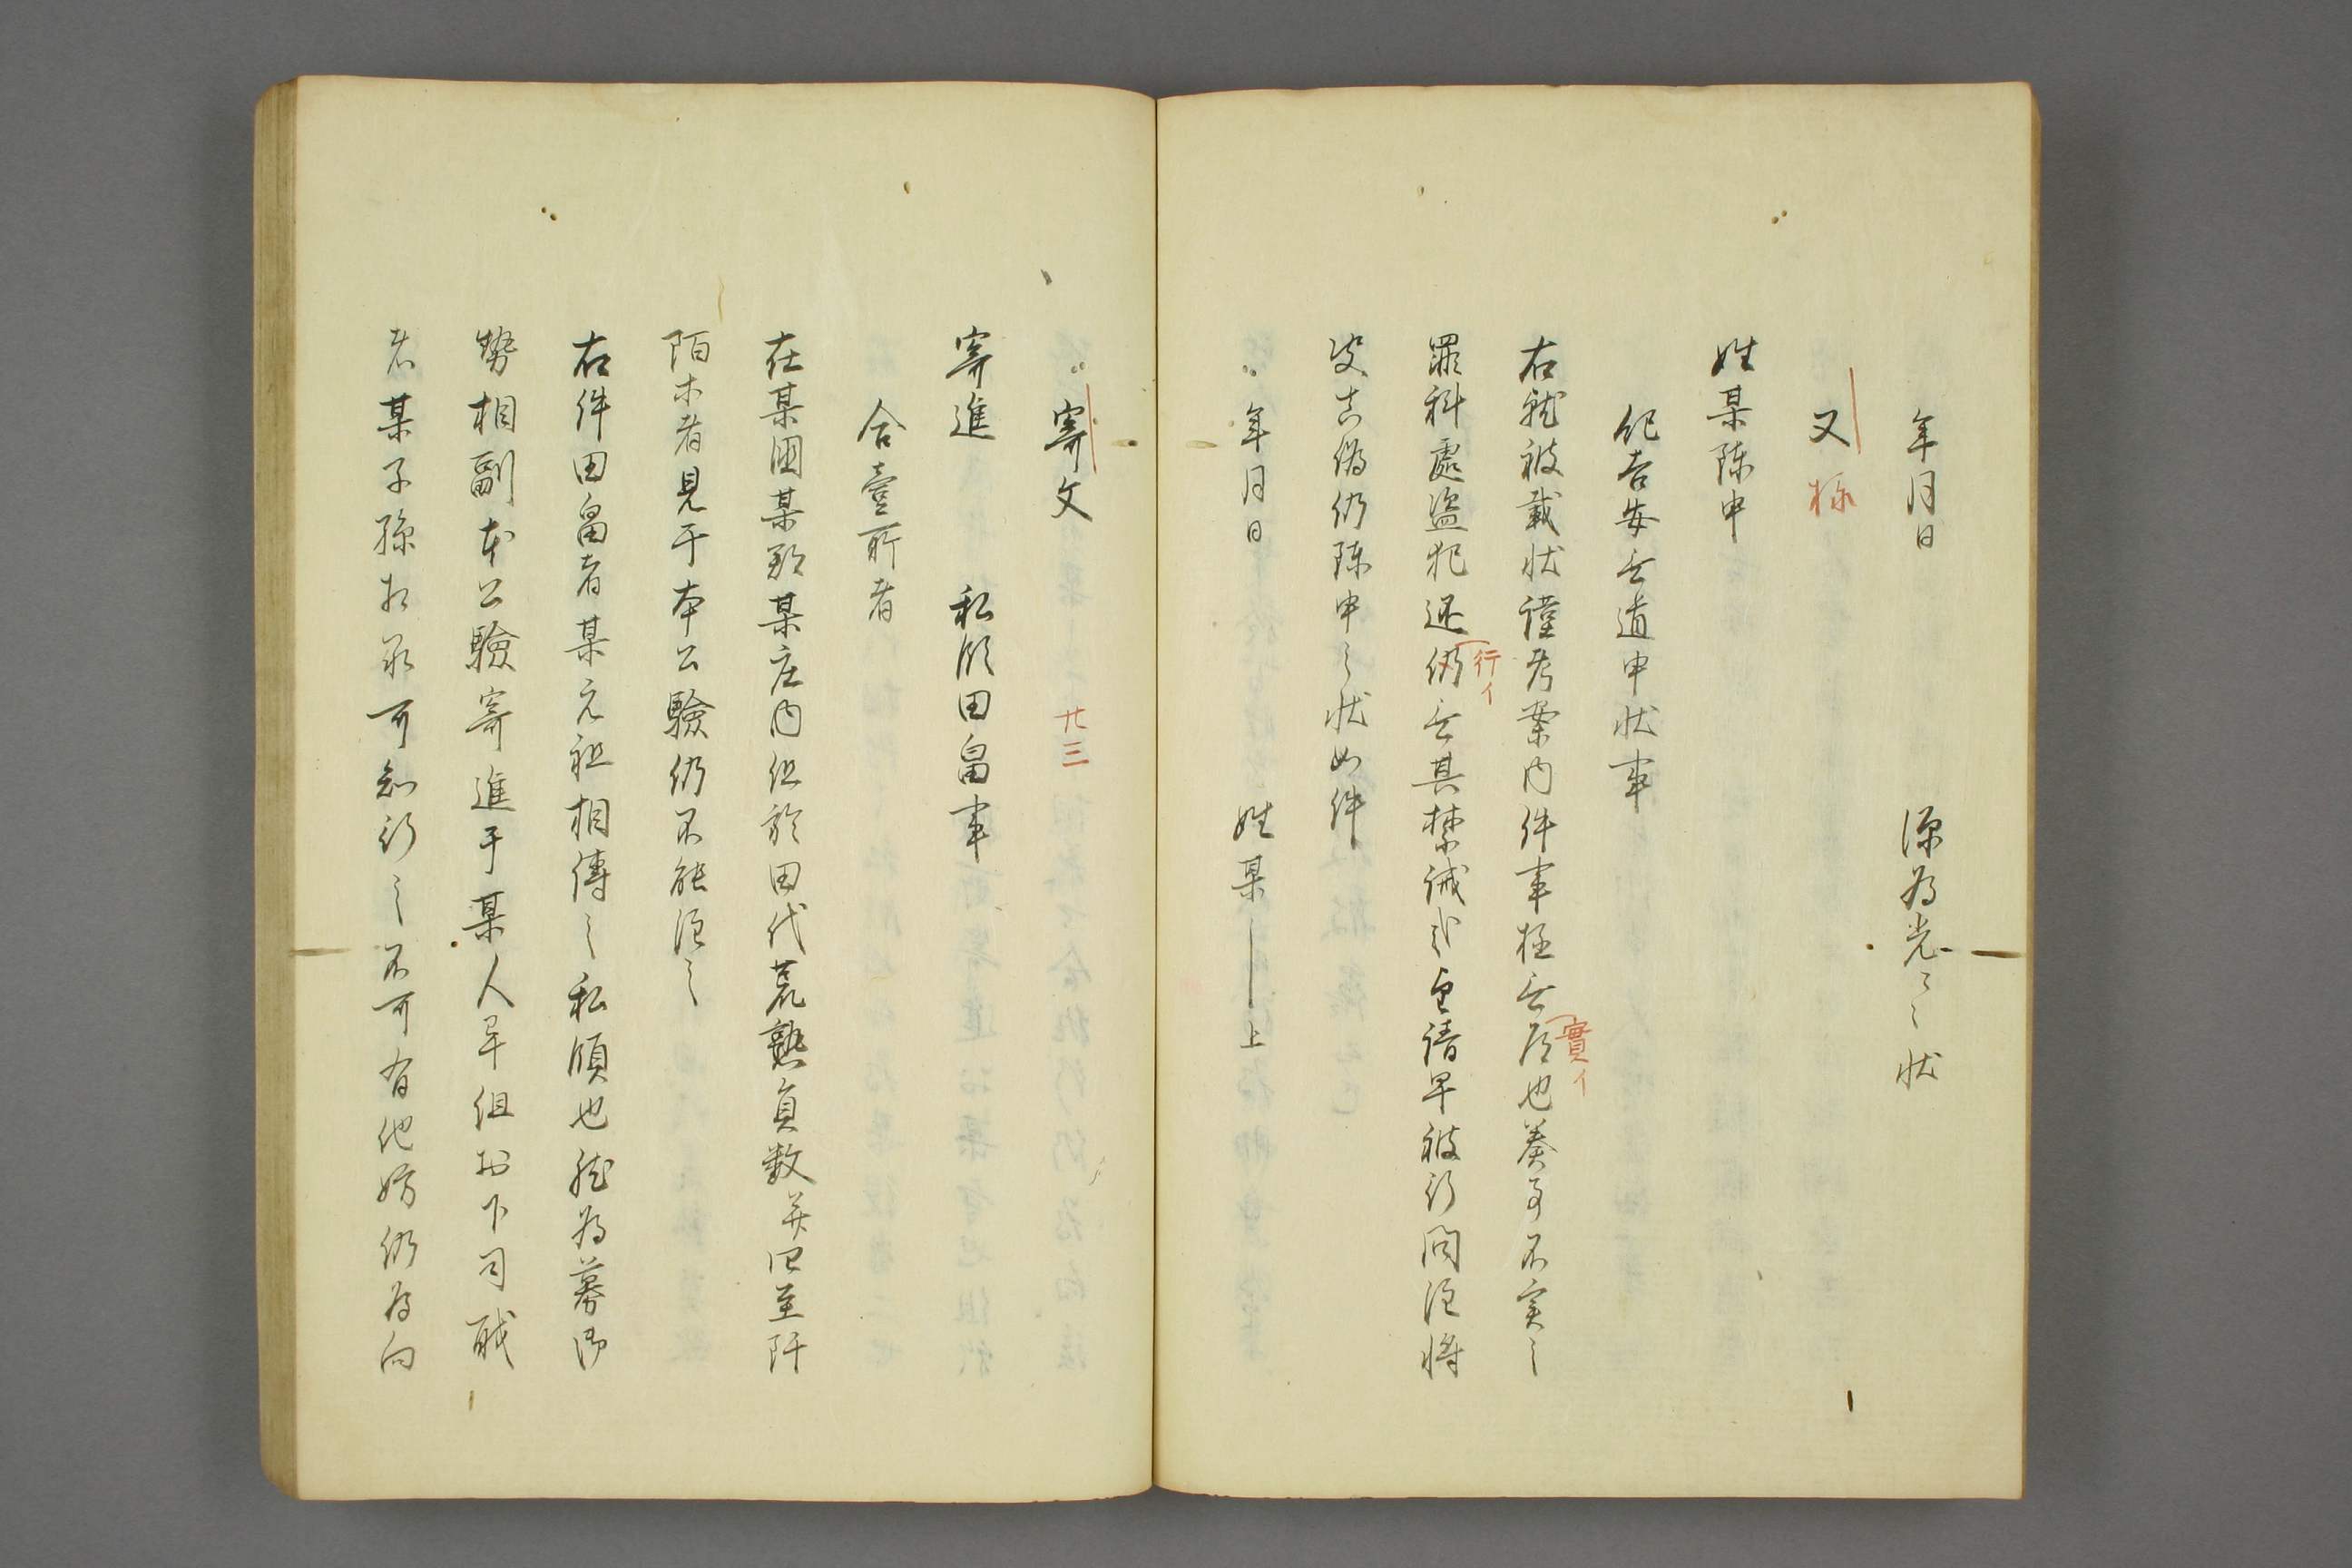 年月日　源為光之状
又様
姓某陳申
紀吉安無道申状事
右就被載状謹考案内件事極無實イ也姦事不実之
罪科處盗犯還仍行イ無其禁誡望請早被行問注将
決真偽仍陳申之状如件
年月日　姓某　上
寄文　廿三
寄進　私領田畠事
合壹所者
在某国某郡某庄内但於田代荒熟員数并四至阡
陌等者見于本公験仍不能注之
右件田畠者某元祖相傳之私領也然為募御
勢相副本公験寄進于某人畢但於下司職
者某子孫相承可知行之不可有他妨仍為向